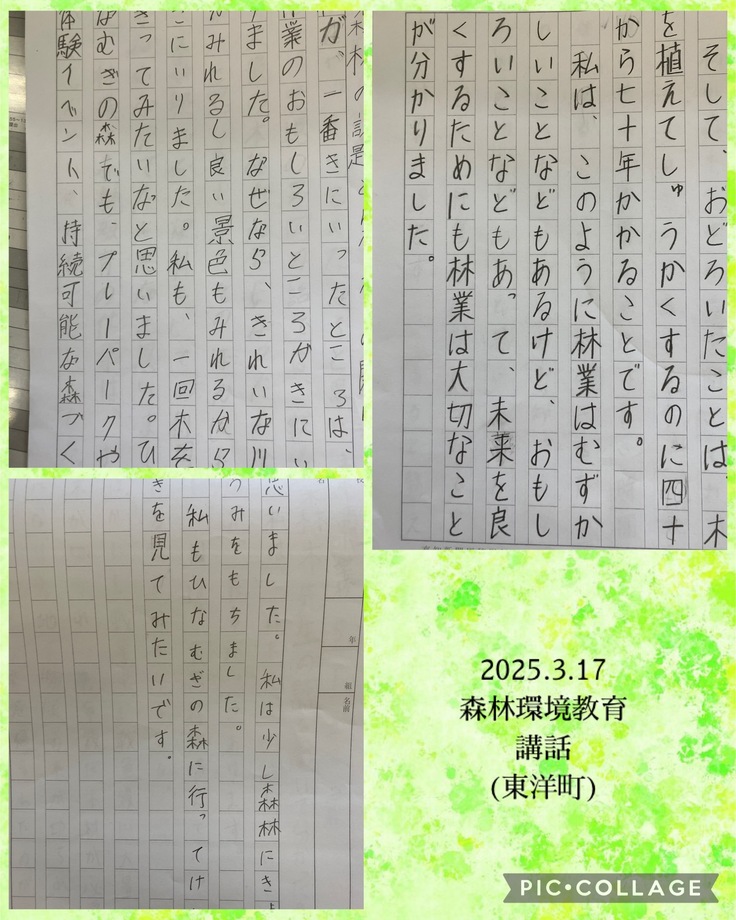 そして、おどろいたことは、木
を植えてしゅうかくするのに四十
から七十年かかることです。
私は、このように林業はむずか
しいことなどもあるけど、おもし
ろいことなどもあって、未来を良
くするためにも林業は大切なこと
が分かりました。
が、一番きにいったところは、
業のおもしろいところがきにい
ました。なぜなら、きれいな川
みれるし良い景色もみれるから
にいりました。私も、一回木を
ってみたいなと思いました。ひ
なむぎの森でも、プレーパークや
体験イベント、持続可能な森づく
思いました。私は少し森林にき
うみをもちました。
私もひなむぎの森に行ってけ
きを見てみたいです。
年
組
名前
2025.3.17
森林環境教育
講話
(東洋町)
PIC•COLLAGE